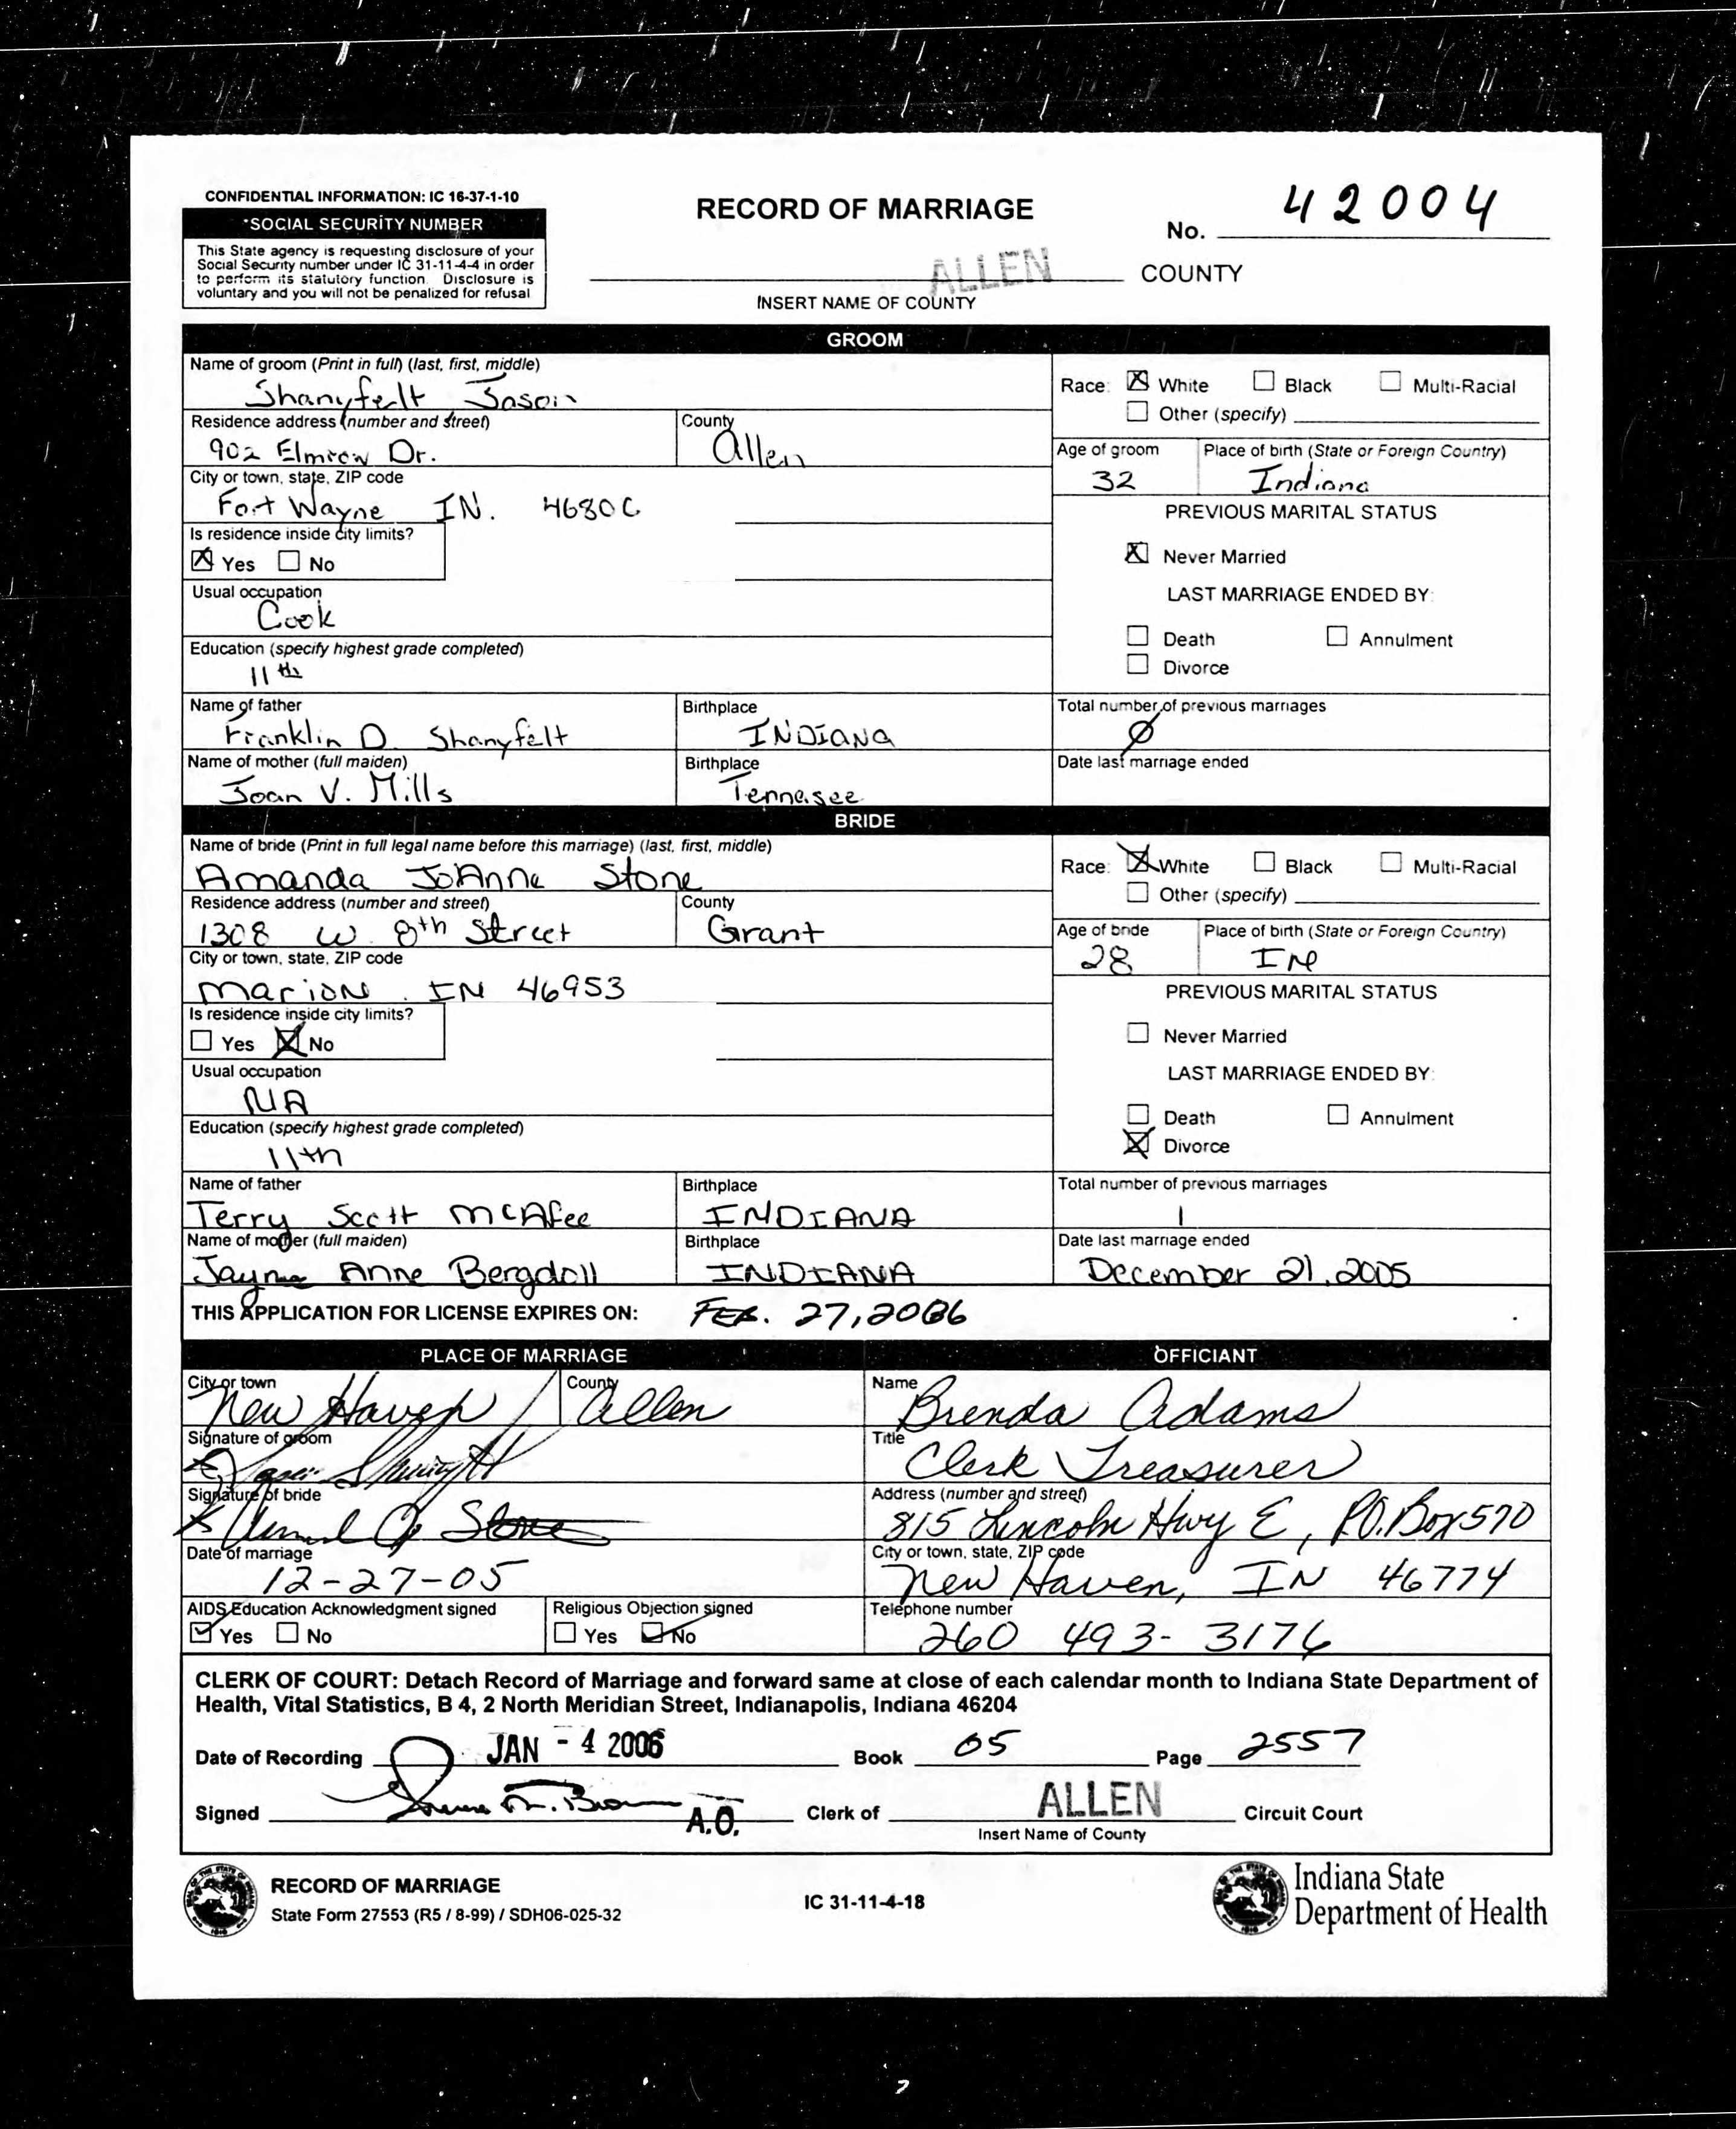 CONFIDENTIAL INFORMATION: IC 16-37-1-10
*SOCIAL SECURITY NUMBER
This State agency is requesting disclosure of your
Social Security number under IC 31-11-4-4 in order
to perform its statutory function. Disclosure is
voluntary and you will not be penalized for refusal
RECORD OF MARRIAGE
No. 42004
ALLEN COUNTY
INSERT NAME OF COUNTY
GROOM
Name of groom (Print in full) (last, first, middle)
Shanyfelt Jason
Race: White Black Multi-Racial
Other (specify)
Residence address (number and street)
902 Elmrow Dr.
County
Allen
Age of groom
32
Place of birth (State or Foreign Country)
Indiana
City or town, state, ZIP code
Fort Wayne IN. 46806
PREVIOUS MARITAL STATUS
Is residence inside city limits?
Yes No
Never Married
Usual occupation
Cook
LAST MARRIAGE ENDED BY:
Death Annulment
Divorce
Education (specify highest grade completed)
11th
Name of father
Franklin D. Shanyfelt
Birthplace
INDIANA
Total number of previous marriages
Ø
Name of mother (full maiden)
Joan V. Mills
Birthplace
Tennesee
Date last marriage ended
BRIDE
Name of bride (Print in full legal name before this marriage) (last, first, middle)
Amanda JoAnna Stone
Race: White Black Multi-Racial
Other (specify)
Residence address (number and street)
1308 W 8th Street
County
Grant
Age of bride
28
Place of birth (State or Foreign Country)
IN
City or town, state, ZIP code
Marion IN 46953
PREVIOUS MARITAL STATUS
Is residence inside city limits?
Yes No
Never Married
Usual occupation
NA
LAST MARRIAGE ENDED BY:
Death Annulment
Divorce
Education (specify highest grade completed)
11th
Name of father
Terry Scott McAfee
Birthplace
INDIANA
Total number of previous marriages
1
Name of mother (full maiden)
Jayne Anne Bergdoll
Birthplace
INDIANA
Date last marriage ended
December 21, 2005
THIS APPLICATION FOR LICENSE EXPIRES ON: FEB. 27, 2006
PLACE OF MARRIAGE
OFFICIANT
City or town
New Haven
County
Allen
Name
Brenda Adams
Signature of groom
Jason Shanyfelt
Title
Clerk Treasurer
Signature of bride
Stone
Address (number and street)
815 Lincoln Hwy E, P.O. Box 570
Date of marriage
12-27-05
City or town, state, ZIP code
New Haven, IN 46774
AIDS Education Acknowledgment signed
Yes No
Religious Objection signed
Yes No
Telephone number
260 493-3176
CLERK OF COURT: Detach Record of Marriage and forward same at close of each calendar month to Indiana State Department of
Health, Vital Statistics, B 4, 2 North Meridian Street, Indianapolis, Indiana 46204
Date of Recording JAN - 4 2006 Book 05 Page 2557
Signed A.O. Clerk of ALLEN Circuit Court
Insert Name of County
RECORD OF MARRIAGE
State Form 27553 (R5 / 8-99) / SDH06-025-32
IC 31-11-4-18
Indiana State
Department of Health